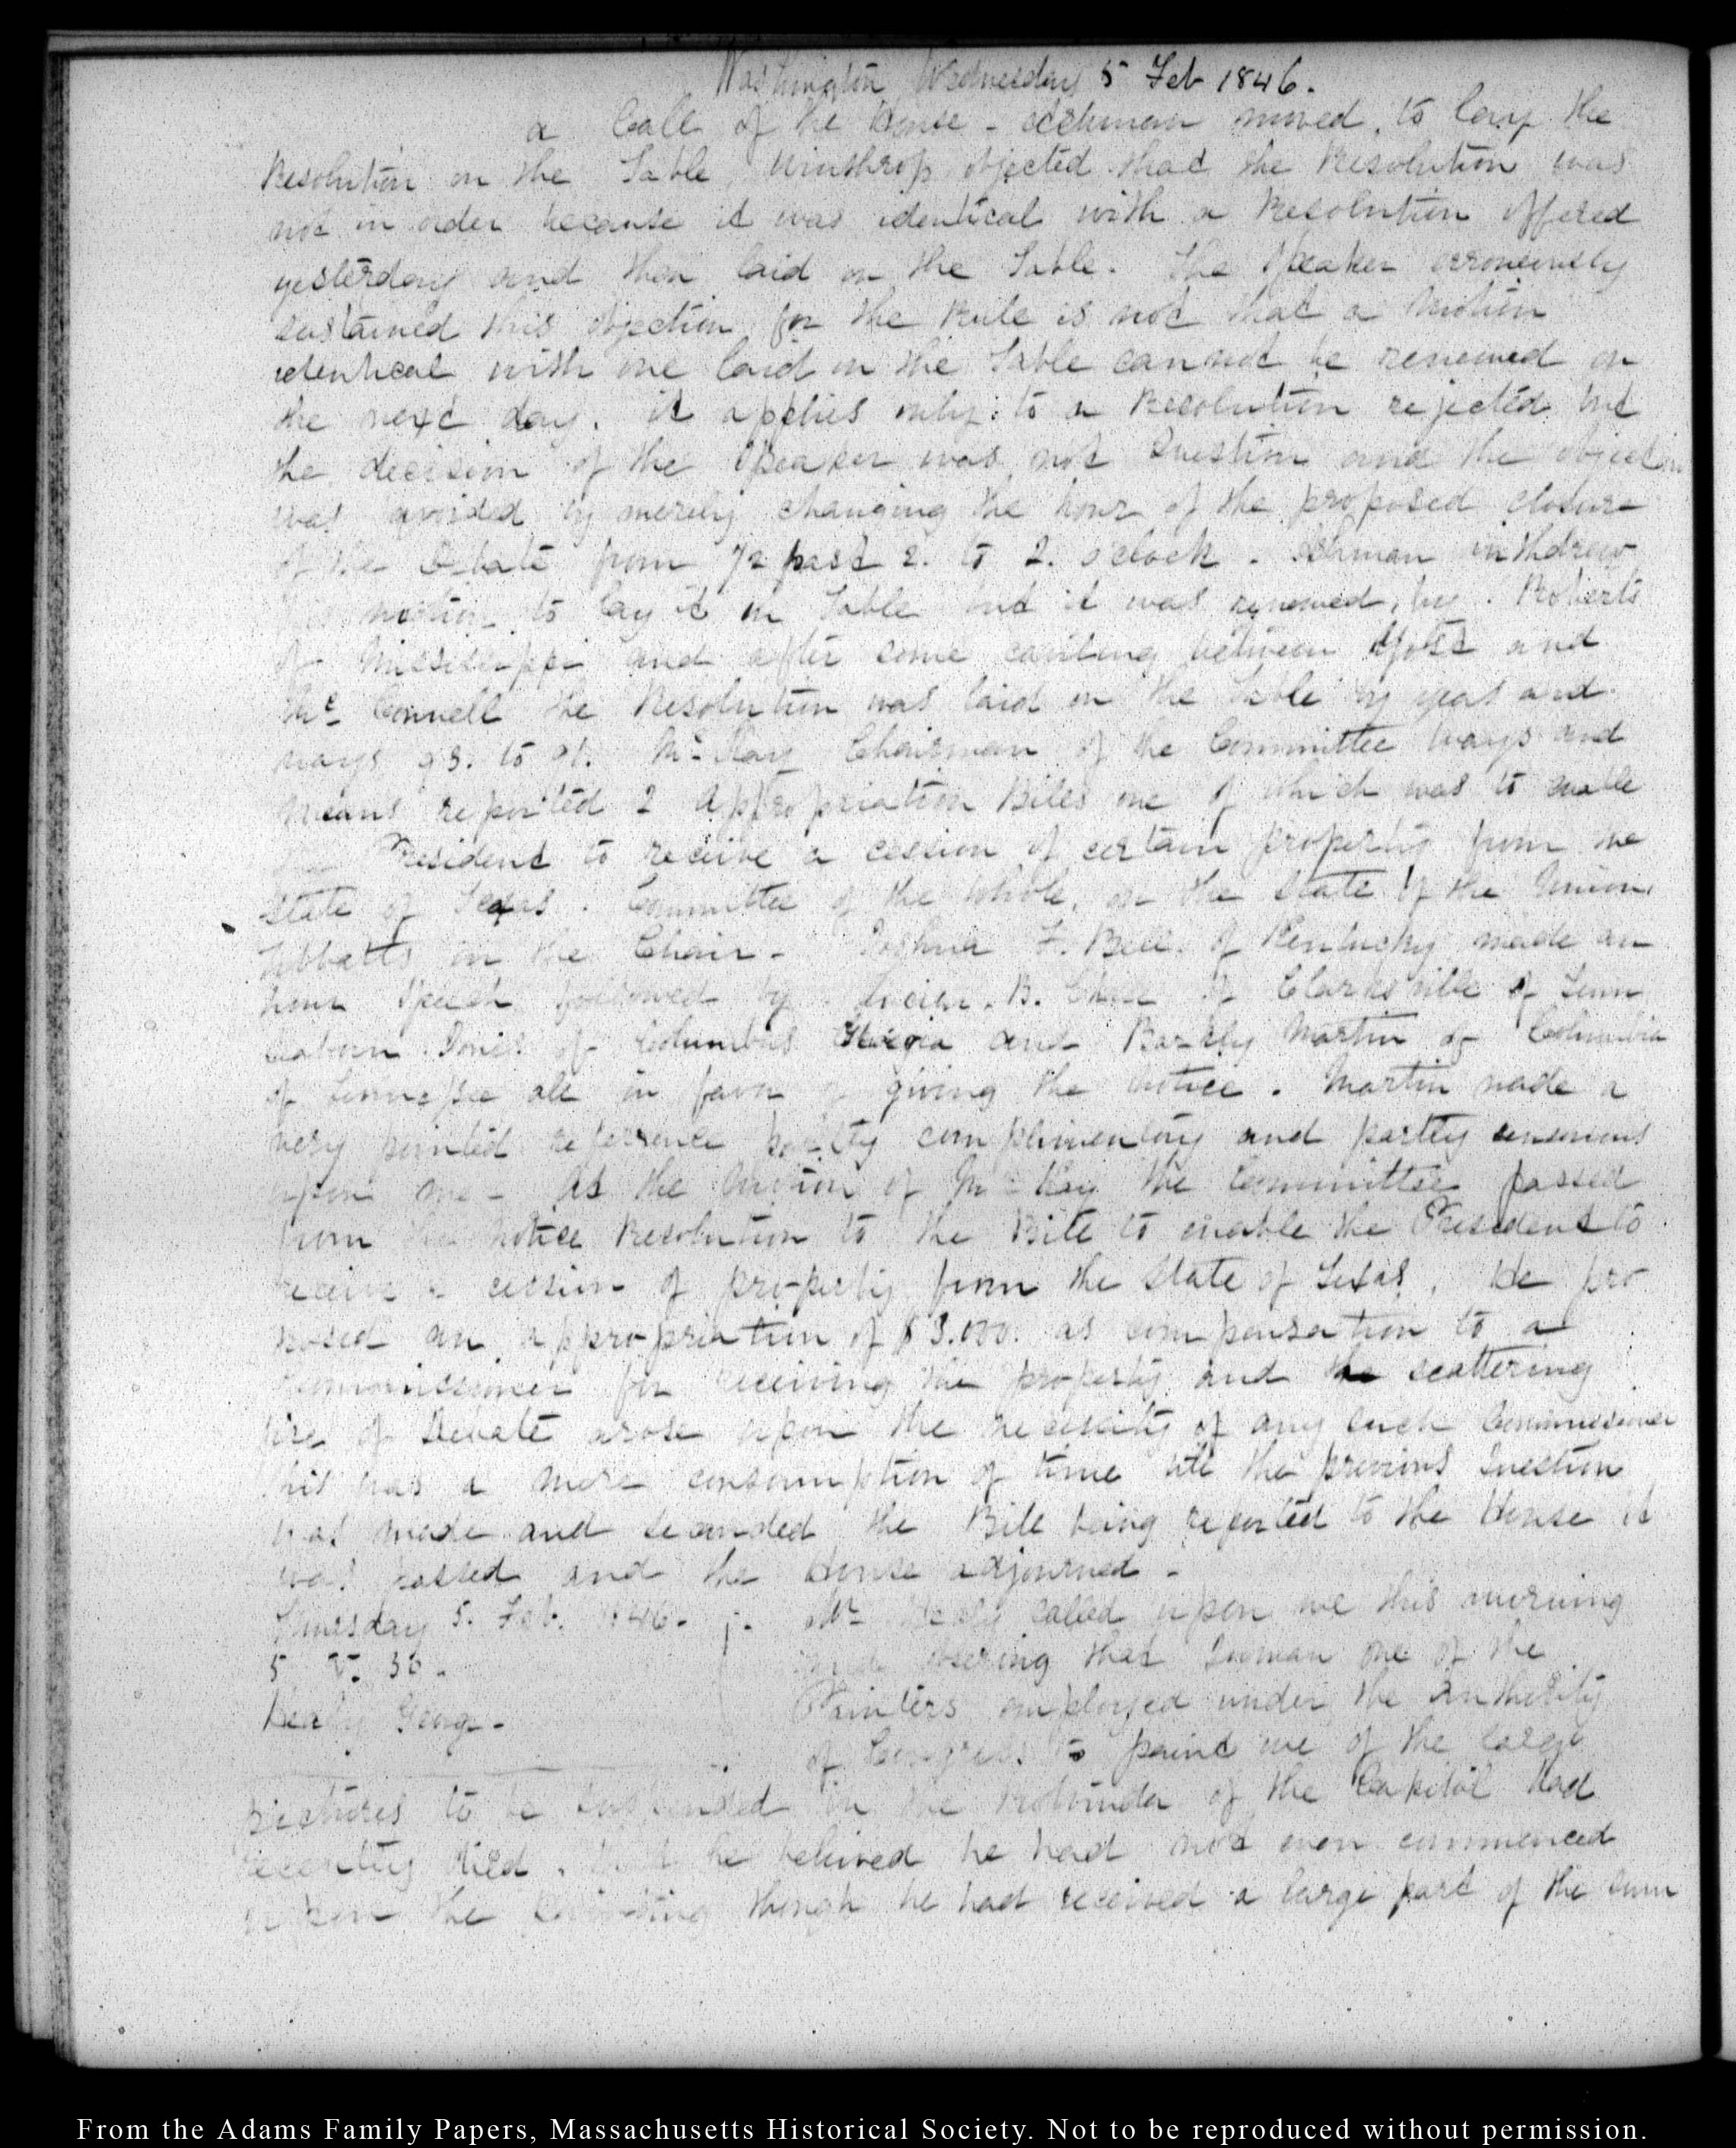 Washington Wednesday 5 Feb 1846.
a Call of the House - Ashmun moved, to lay the
Resolution on the Table, Winthrop objected that the Resolution was
not in order because it was identical with a Resolution offered
yesterday and then laid on the Table. The Speaker erroneously
sustained this objection for the Rule is not that a Motion
identical with one laid on the Table cannot be renewed on
the next day. it applies only to a Resolution rejected but
the decision of the Speaker was not Question and the objection
was avoided by merely changing the hour of the proposed closure
of the Debate from 1/2 past 2. to 2. o'clock. Ashmun withdrew
his motion to lay it on Table and it was renewed, by Roberts
of Mississippi and after some between and
Mc. Connell the Resolution was laid on the Table by yeas and
nays 93. to 91. Mc. Kay Chairman of the Committee Ways and
Means reported 2 Appropriation Bills one of which was to enable
President to receive a cession of certain property from the
State of Texas. Committee of the whole, on the State of the Union,
Tibbatts in the Chair - Joshua F. Bell of Kentucky made an
hour Speech followed by Lucien. B. Chase of Clarksville of Tenn
Seaborn Jones of Columbus Georgia and Barkly Martin of Columbia
of Tennessee all in favor of giving the notice. Martin made a
very pointed reference partly complimentary and partly censorious
upon me - At the Motion of Mc Kay the Committee passed
from the Notice Resolution to the Bill to enable the President to
receive a cession of property from the State of Texas. He pro
posed an appropriation of $3.000. as compensation to a
Commissioner for receiving the property and the scattering
fire of Debate arose upon the necessity of any such Commissioner
this was a mere consumption of time till the previous Question
was made and seconded the Bill being reported to the House it
was passed and the House adjourned -
Thursday 5. Feb. 1846.
5 V. 30.
Healy Georg-
Mr Healy called upon me this morning
observing that Inman one of the
Painters employed under the Authority
of Congress to paint one of the large
pictures to be suspended in the Rotunda of the Capitol had
recently died. that he believed he had not even commenced
upon the Painting though he had received a large part of the sum
From the Adams Family Papers, Massachusetts Historical Society. Not to be reproduced without permission.